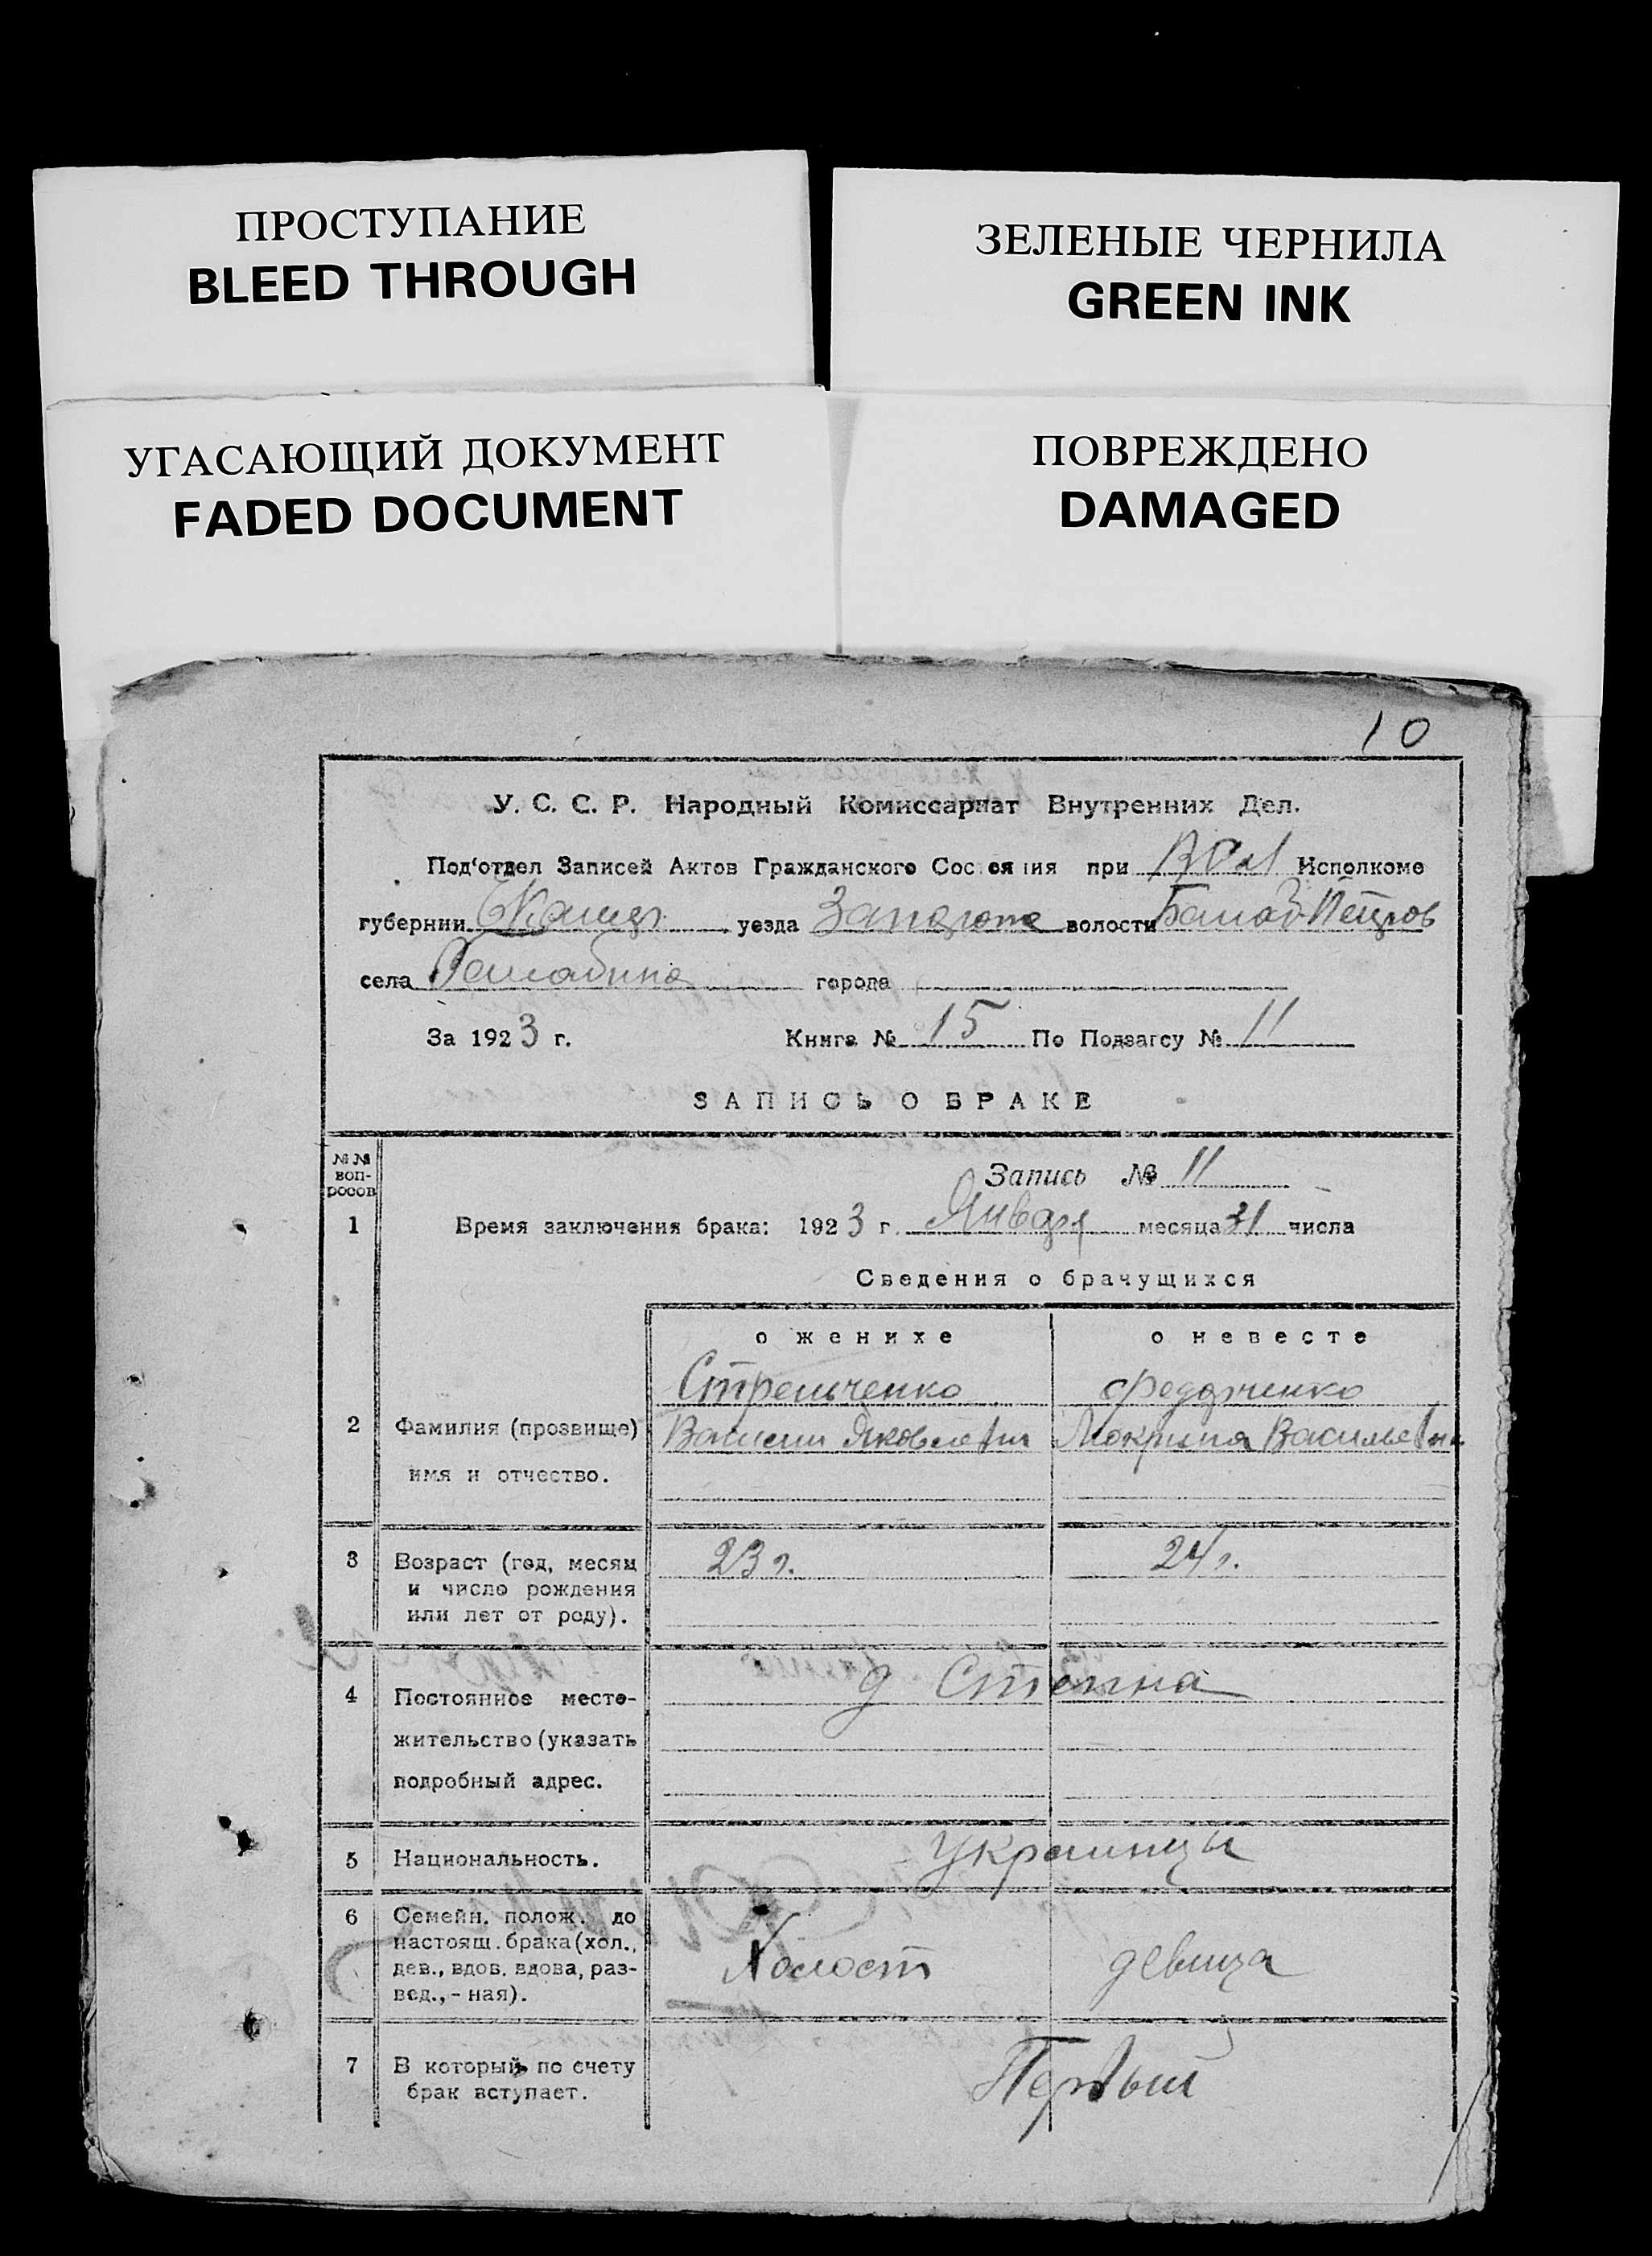 ПРОСТУПАНИЕ
BLEED THROUGH
ЗЕЛЕНЫЕ ЧЕРНИЛА
GREEN INK
УГАСАЮЩИЙ ДОКУМЕНТ
FADED DOCUMENT
ПОВРЕЖДЕНО
DAMAGED
10
У. С. С. Р. Народный Комиссариат Внутренних Дел.
Под‘отдел Записей Актов Гражданского Сос ояния при Вол Исполкоме
губернии уезда Запорож волости Балаб-Петров
села Балабино города
За 1923 г. Книга № 15 По Подзагсу № 11
ЗАПИСЬ О БРАКЕ
№№ воп-
росов
Запись № 11
1 Время заключения брака: 1923 г. Январ месяца 31 числа
Сведения о брачущихся
о женихе о невесте
Стрельченко
2 Фамилия (прозвище)
имя и отчество.
Василий Яковлевич Мокрына Васильевна
3 Возраст (год, месяц
и число рождения
или лет от роду).
23 г. 24 г.
4 Постоянное место-
жительство (указать
подробный адрес.
д Степна
5 Национальность. Украинцы
6 Семейн. полож. до
настоящ. брака (хол.,
дев., вдов. вдова, раз-
вед., - ная).
Холост девица
7 В который по счету
брак вступает.
Первый